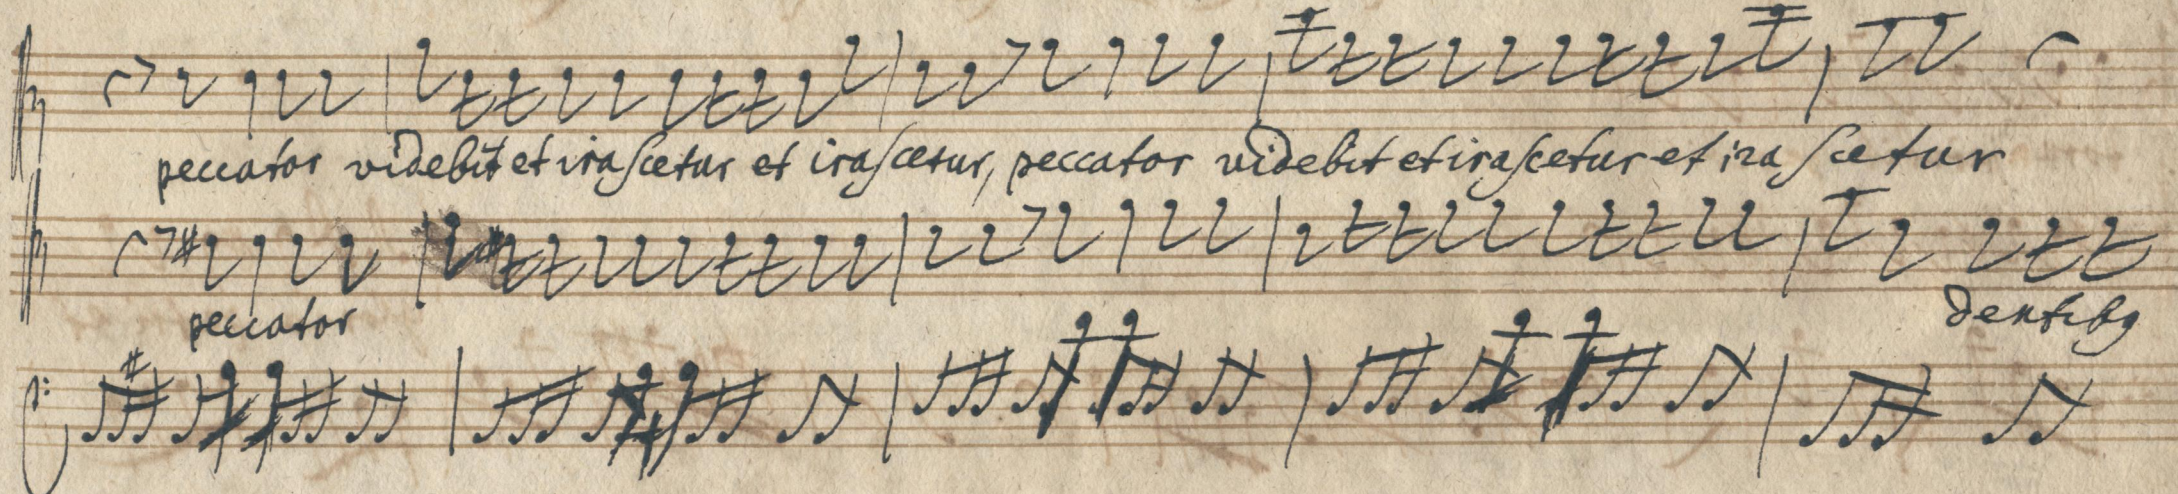 peccator videbit et irascetur et irascetur, peccator videbit et irascetur et ira scetur
peccator
dentibꝰ